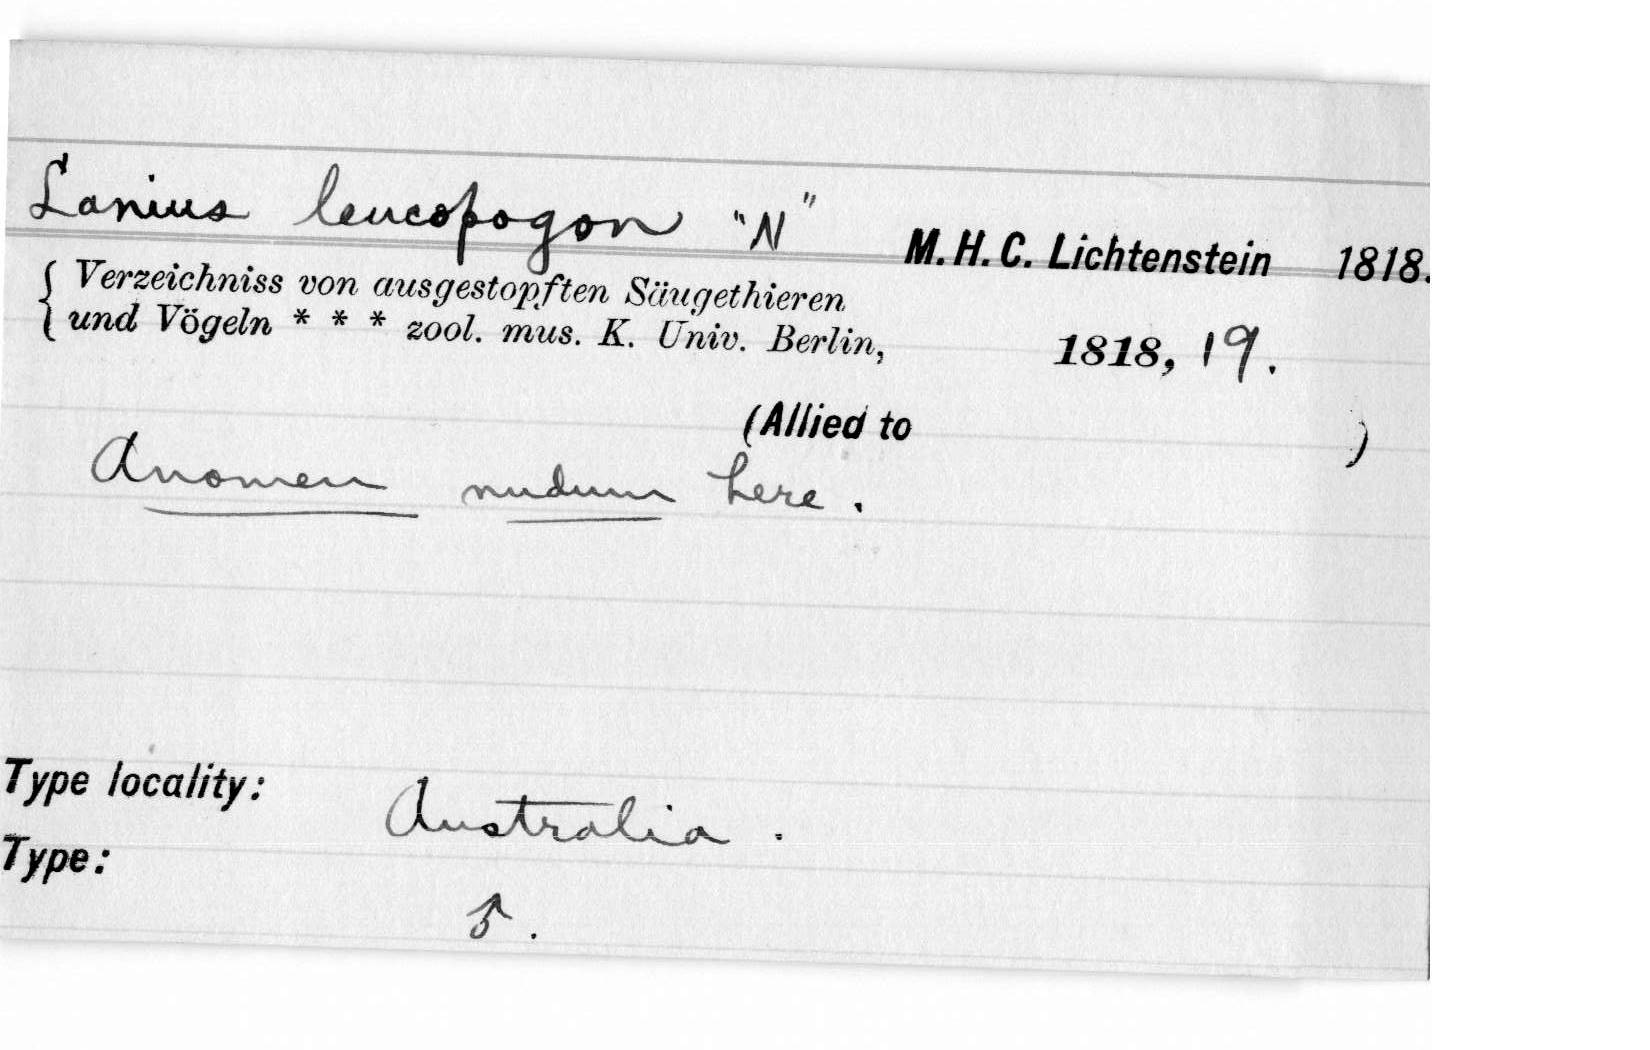 Lanius leucopogon "N" M. H. C. Lichtenstein 1818.
{ Verzeichniss von ausgestopften Säugethieren
und Vögeln * * * zool. mus. K. Univ. Berlin, 1818, 19.
(Allied to )
A nomen nudum here.
Type locality: Australia.
Type:
♂.